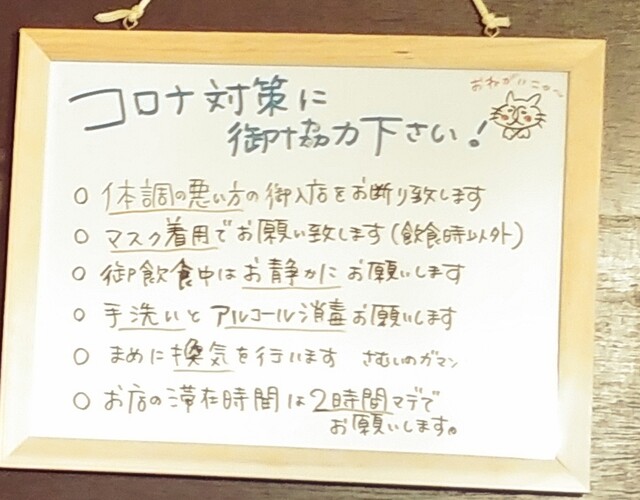 コロナ対策に
御協力下さい!
おねがいニャ〜
○ 体調の悪い方の御入店をお断り致します
○ マスク着用でお願い致します(飲食時以外)
○ 御飲食中はお静かにお願いします
○ 手洗いとアルコール消毒お願いします
○ まめに換気を行います さむいのガマン
○ お店の滞在時間は2時間マデで
お願いします。